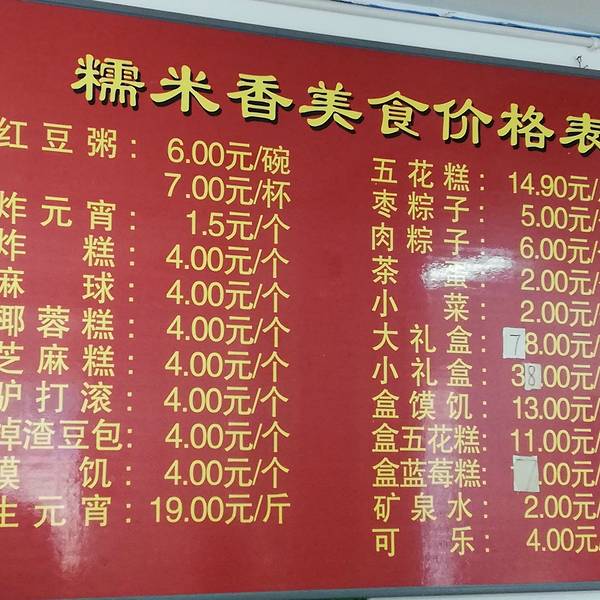 糯米香美食价格表
红豆粥: 6.00元/碗
7.00元/杯
炸元宵: 1.5元/个
炸糕: 4.00元/个
麻球: 4.00元/个
椰蓉糕: 4.00元/个
芝麻糕: 4.00元/个
驴打滚: 4.00元/个
掉渣豆包: 4.00元/个
馍饥: 4.00元/个
生元宵: 19.00元/斤
五花糕: 14.90元/
枣粽子: 5.00元/
肉粽子: 6.00元/
茶蛋: 2.00元/
小菜: 2.00元/
大礼盒: 78.00元/
小礼盒: 38.00元/
盒馍饥: 13.00元/
盒五花糕: 11.00元/
盒蓝莓糕: .00元/
矿泉水: 2.00元/
可乐: 4.00元/